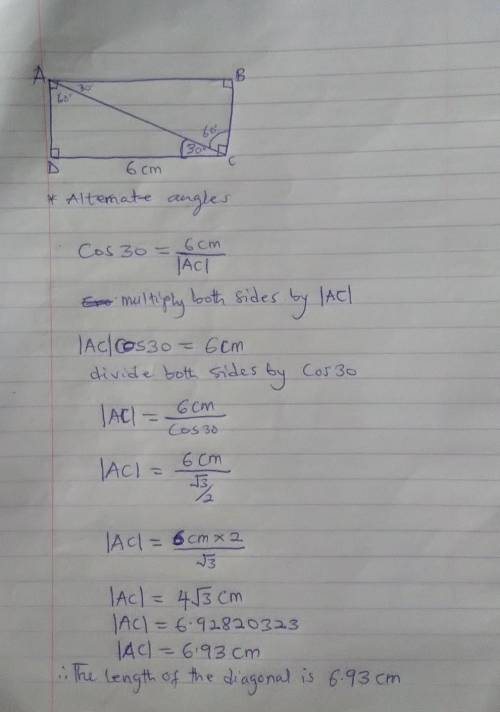 A B
30°
60°
60°
30°
D C
6 cm
* Alternate angles
Cos 30 = 6cm / |AC|
multiply both sides by |AC|
|AC| cos 30 = 6cm
divide both sides by Cos 30
|AC| = 6cm / Cos 30
|AC| = 6cm / √3/2
|AC| = 6cm × 2 / √3
|AC| = 4√3 cm
|AC| = 6.92820323
|AC| = 6.93 cm
∴ The length of the diagonal is 6.93 cm